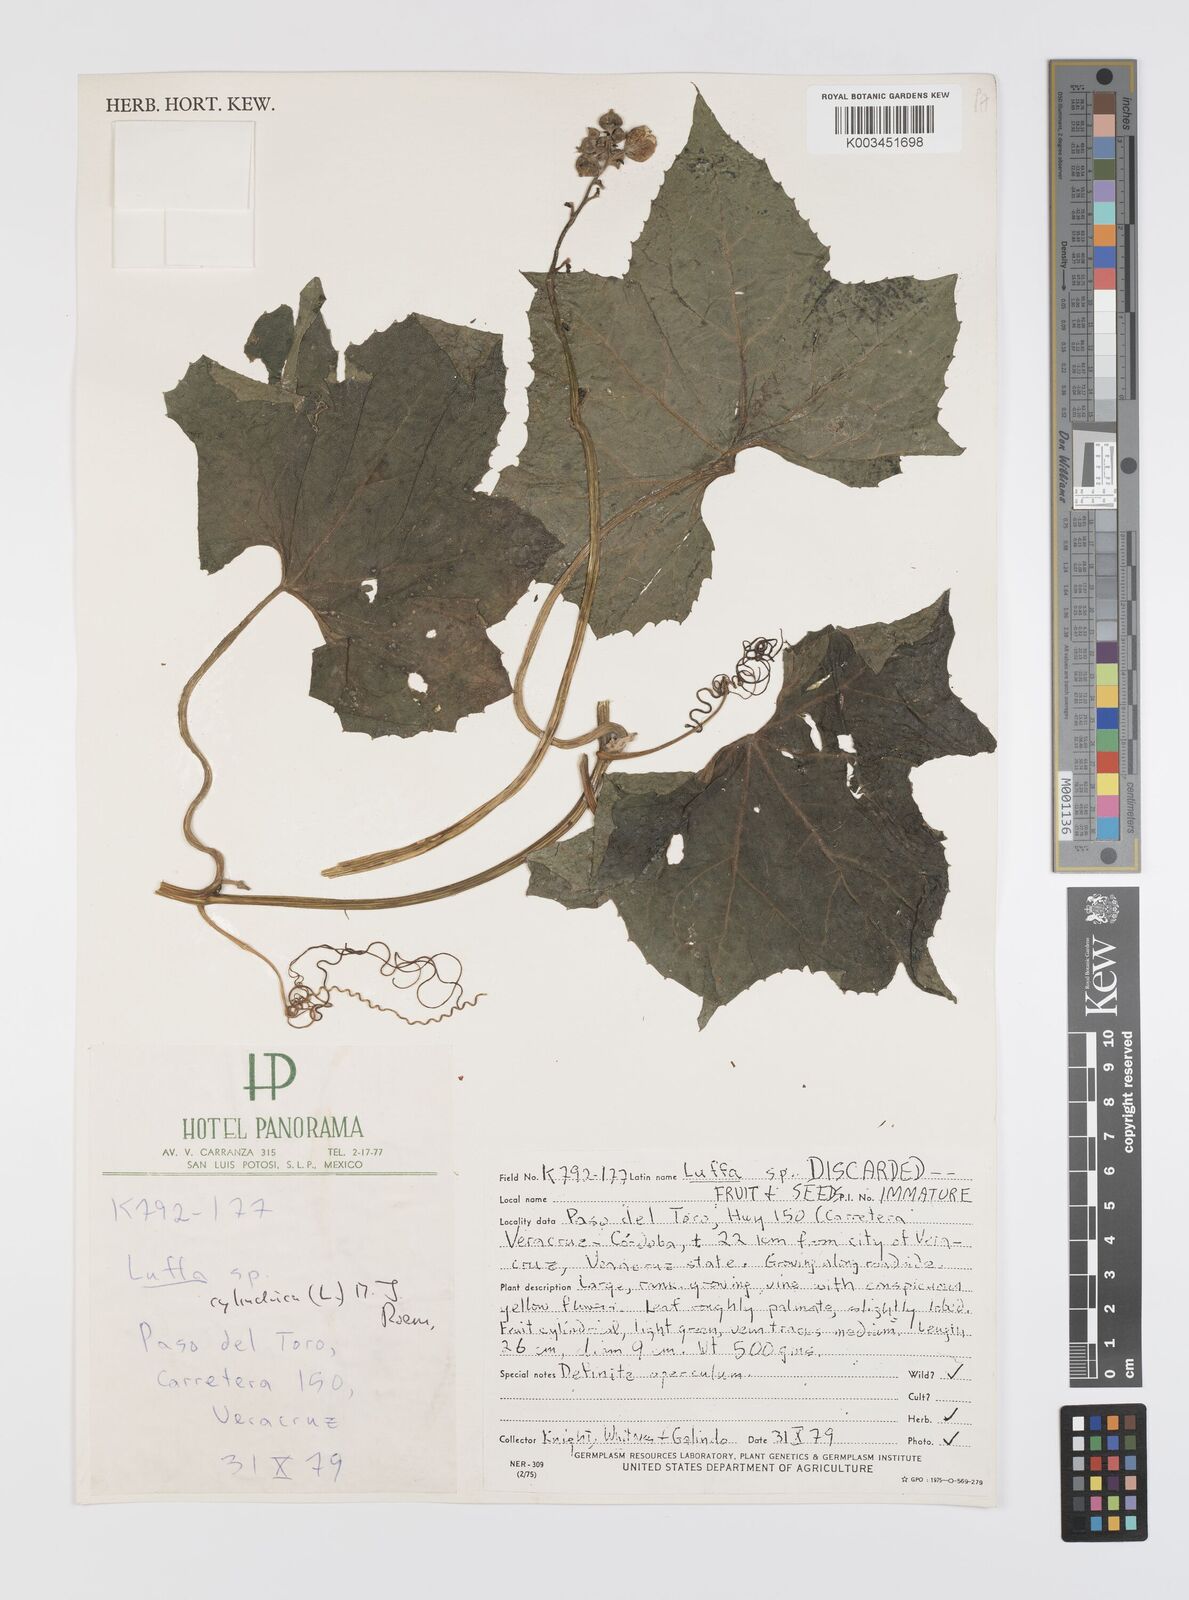 HERB. HORT. KEW.
ROYAL BOTANIC GARDENS KEW
K003451698
HP
HOTEL PANORAMA
AV. V. CARRANZA 315 TEL. 2-17-77
SAN LUIS POTOSI, S. L. P., MEXICO
K792-177
Luffa sp.
cylindrica (L.) M. J.
Roem.
Paso del Toro,
Carretera 150,
Veracruz
31 X 79
Field No. K792-177 Latin name Luffa sp. DISCARDED--
Local name FRUIT & SEEDS P.I. No. IMMATURE
Locality data Paso del Toro, Hwy 150 (Carretera
Veracruz-Córdoba, ± 22 km from city of Vera-
cruz, Veracruz state. Growing along roadside.
Plant description Large, rank growing vine with conspicuous
yellow flower. Leaf roughly palmate, slightly lobed.
Fruit cylindrial, light green, vein tracks medium. Length
26 cm, diam 9 cm. Wt 500 gms.
Special notes Definite operculum. Wild? ✓
Cult?
Herb. ✓
Collector Knight, + Galindo Date 31 X 79 Photo. ✓
GERMPLASM RESOURCES LABORATORY, PLANT GENETICS & GERMPLASM INSTITUTE
NER-309
UNITED STATES DEPARTMENT OF AGRICULTURE
(2/75)
☆ GPO : 1975—O-569-279
inches
Density
Don Williams
centimeters
M001136
Royal Botanic Gardens
Kew
0 1 2 3 4 5 6 7 8 9 10
cm
copyright reserved